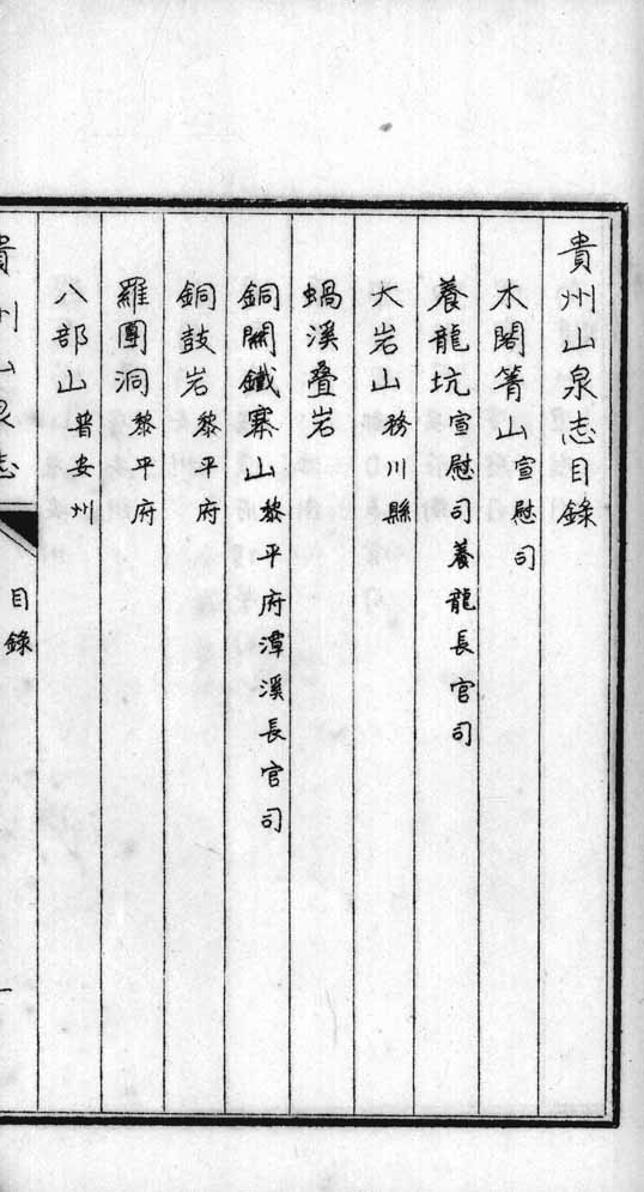 貴州山泉志目錄
木閣箐山宣慰司
養龍坑宣慰司養龍長官司
大岩山務川縣
蝸溪疊岩
銅關鐵寨山黎平府潭溪長官司
銅鼓岩黎平府
羅團洞黎平府
八部山普安州
貴州山泉志 目錄 一